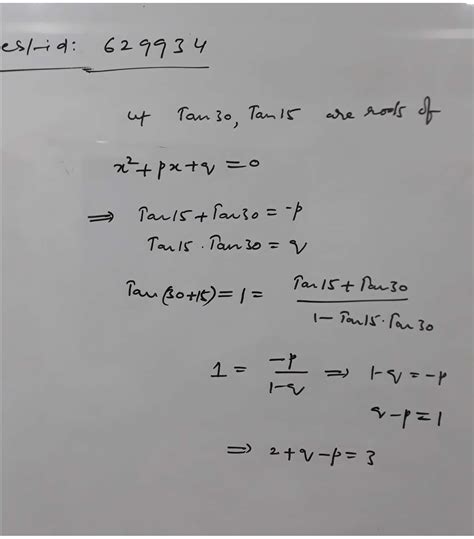 es/-id: 629934
Tan 30, Tan 15 are roots of
x² + px + q = 0
⇒ Tan 15 + Tan 30 = -p
Tan 15 . Tan 30 = q
Tan (30+15) = 1 = (Tan 15 + Tan 30) / (1 - Tan 15 . Tan 30)
1 = -p / (1-q) ⇒ 1-q = -p
q - p = 1
⇒ 2 + q - p = 3